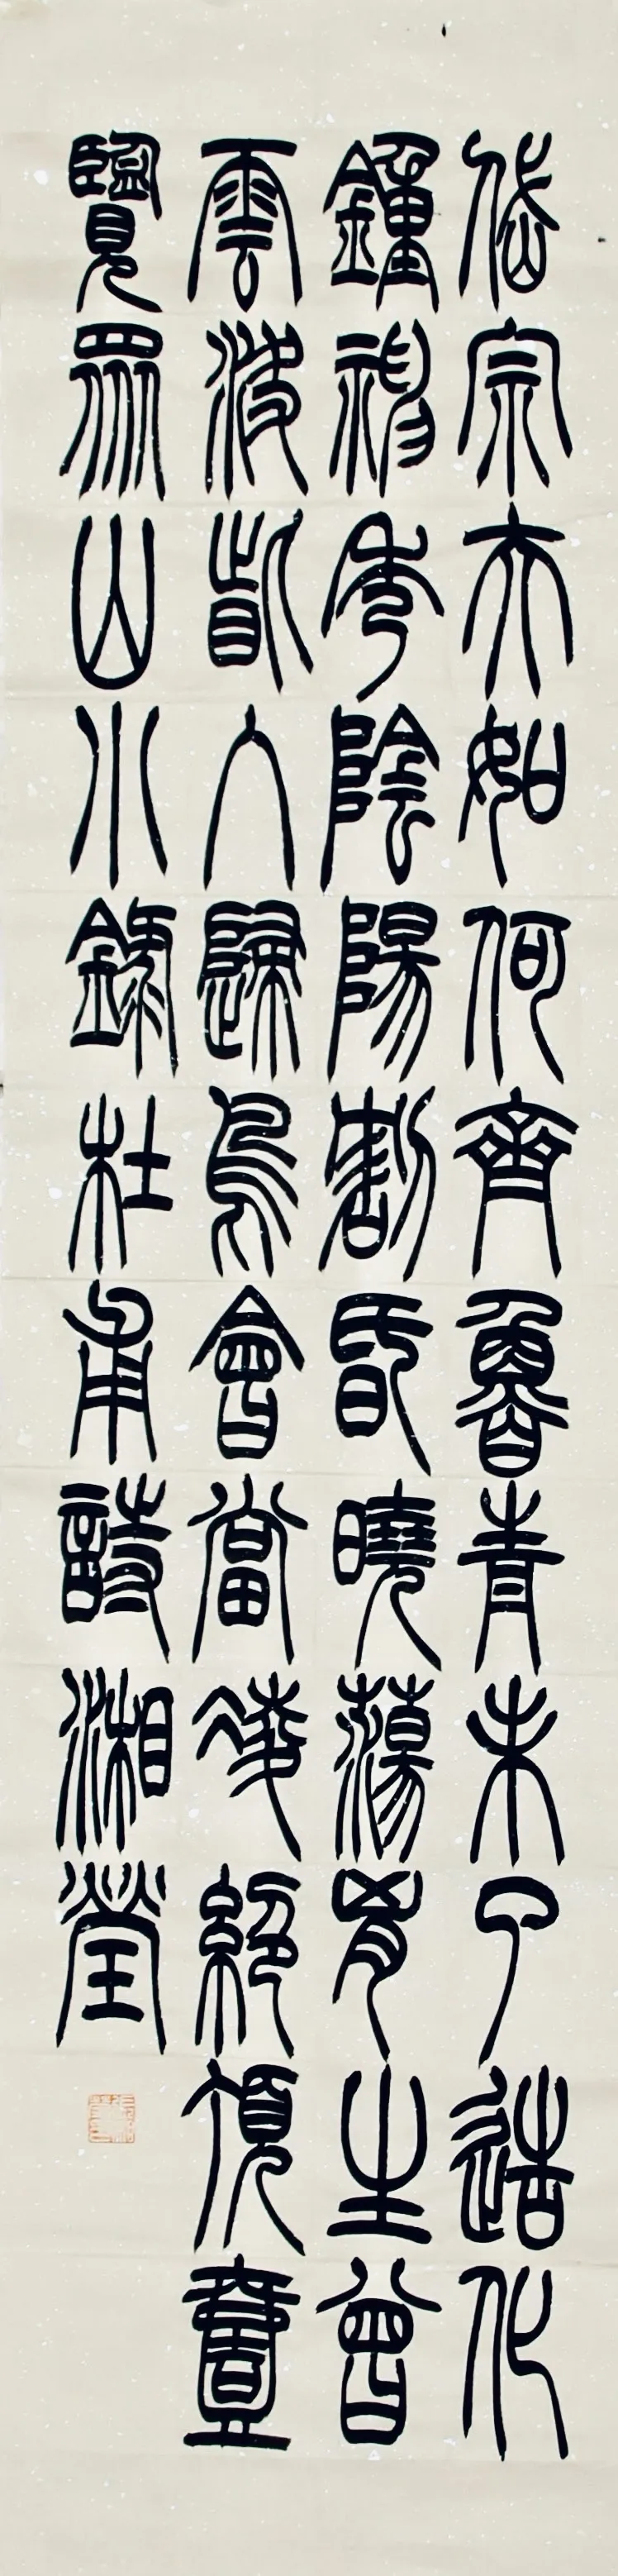 岱宗夫如何齊魯青未了造化
鍾神秀陰陽割昏曉蕩胸生曾
雲決眥入歸鳥會當凌絕頂壹
覽眾山小錄杜甫詩湘瑩